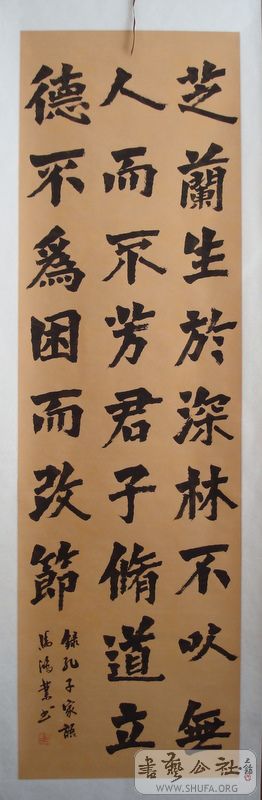 芝蘭生於深林不以無
人而不芳君子脩道立
德不爲困而改節
錄孔子家語
馬鴻業书
書藝公社
WWW.SHUFA.ORG